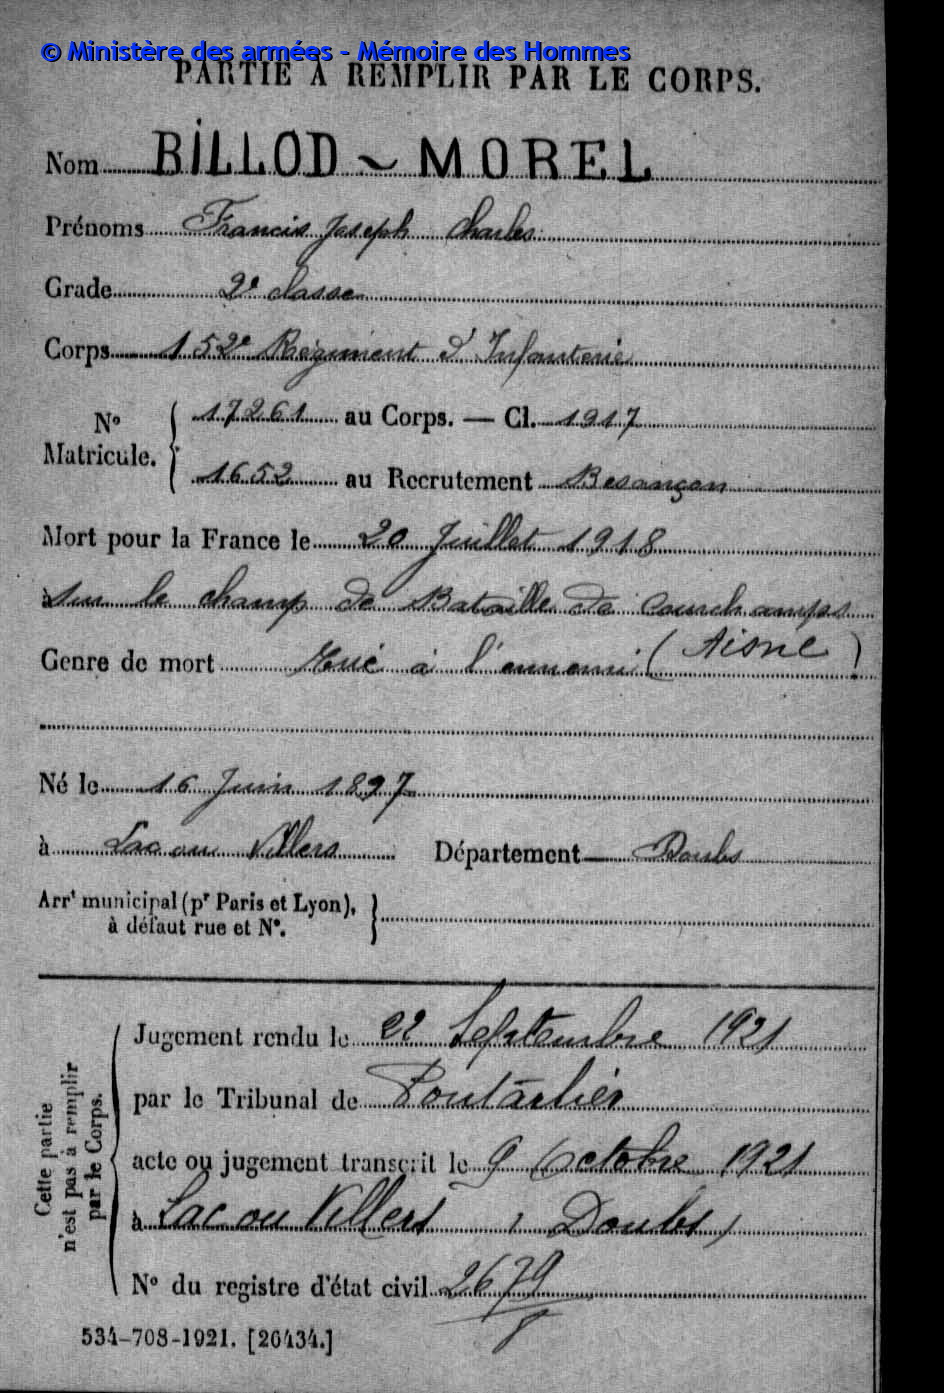 © Ministère des armées - Mémoire des Hommes
PARTIE A REMPLIR PAR LE CORPS.
Nom BILLOD - MOREL
Prénoms Francis Joseph Charles
Grade 2e classe
Corps 152e Régiment d'Infanterie
No Matricule. { 17261 au Corps. — Cl. 1917
1652 au Recrutement Besançon
Mort pour la France le 20 Juillet 1918
à sur le champ de Bataille de Courchamps
Genre de mort Tué à l'ennemi (Aisne)
Né le 16 Juin 1897
à Lac ou Villers Département Doubs
Arrt municipal (pr Paris et Lyon), à défaut rue et No. }
Cette partie n'est pas à remplir par le Corps.
Jugement rendu le 22 Septembre 1921
par le Tribunal de Pontarlier
acte ou jugement transcrit le 9 Octobre 1921
à Lac ou Villers, Doubs,
No du registre d'état civil 2679
534-708-1921. [26434.]